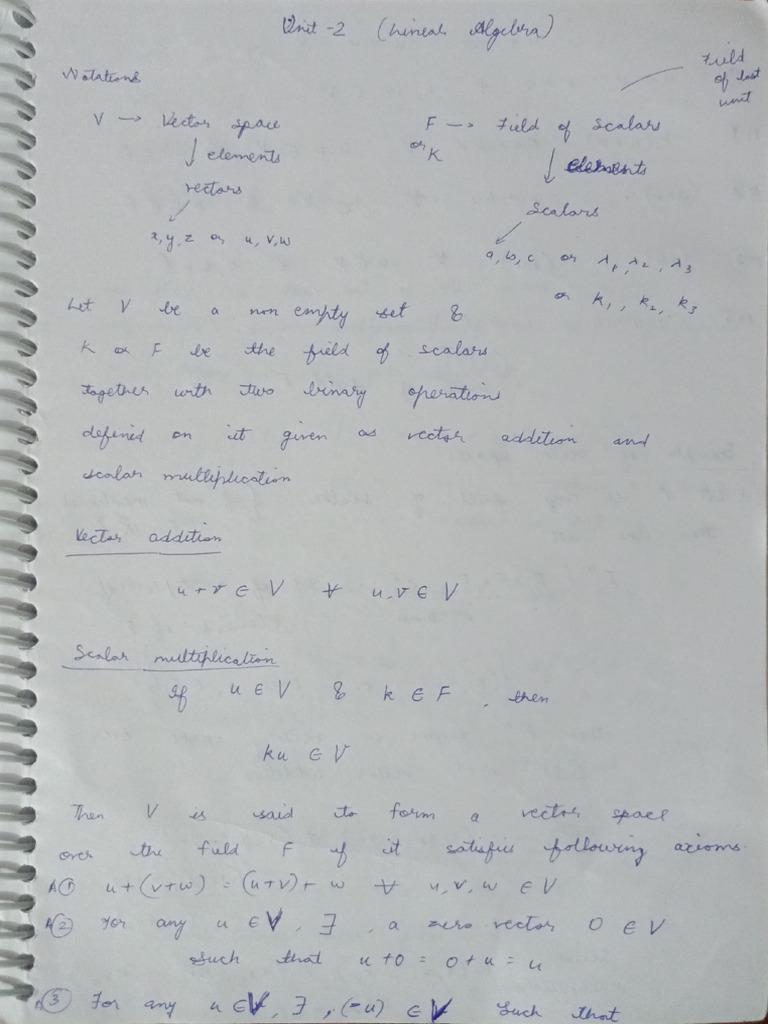 Unit-2 (Linear Algebra)
Field
of last
unit
Notations
V → Vector space
F → Field of Scalars
or
K
↓ elements
↓ elements
vectors
Scalars
x, y, z or u, v, w
a, b, c or λ1, λ2, λ3
or k1, k2, k3
Let V be a non empty set &
K or F be the field of scalars
together with two binary operation
defined on it given as vector addition and
scalar multiplication
Vector addition
u + v ∈ V ∀ u, v ∈ V
Scalar multiplication
If u ∈ V & k ∈ F, then
ku ∈ V
Then V is said to form a vector space
over the field F if it satisfies following axioms.
A① u+(v+w) = (u+v)+w ∀ u, v, w ∈ V
A② For any u ∈ V, ∃, a zero vector 0 ∈ V
such that u+0 = 0+u = u
A③ For any u ∈ V, ∃, (-u) ∈ V such that